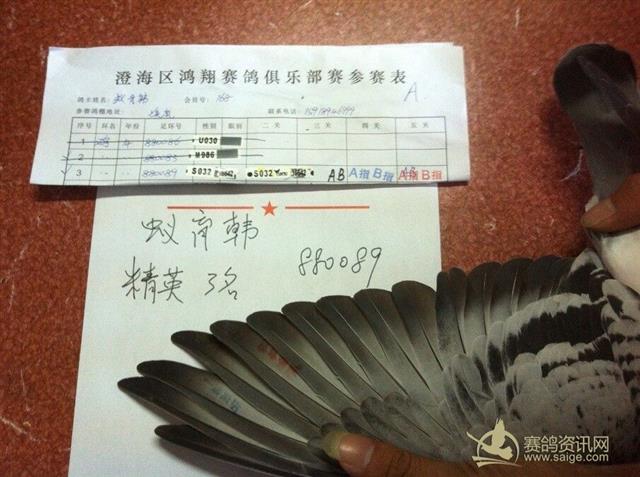 澄海区鸿翔赛鸽俱乐部赛参赛表
鸽主姓名: 会员号: 168 A
参赛鸽棚地址: 联系电话:
序号 环名 年份 足环号 性别 眼别 二关 三关 四关 五关
1 鸿 880086 U030
2 880085 M986
3 880089 S032 S032 AB A指 B指 A指 B指
蚁 韩
精英 3名 880089
赛鸽资讯网
www.saige.com